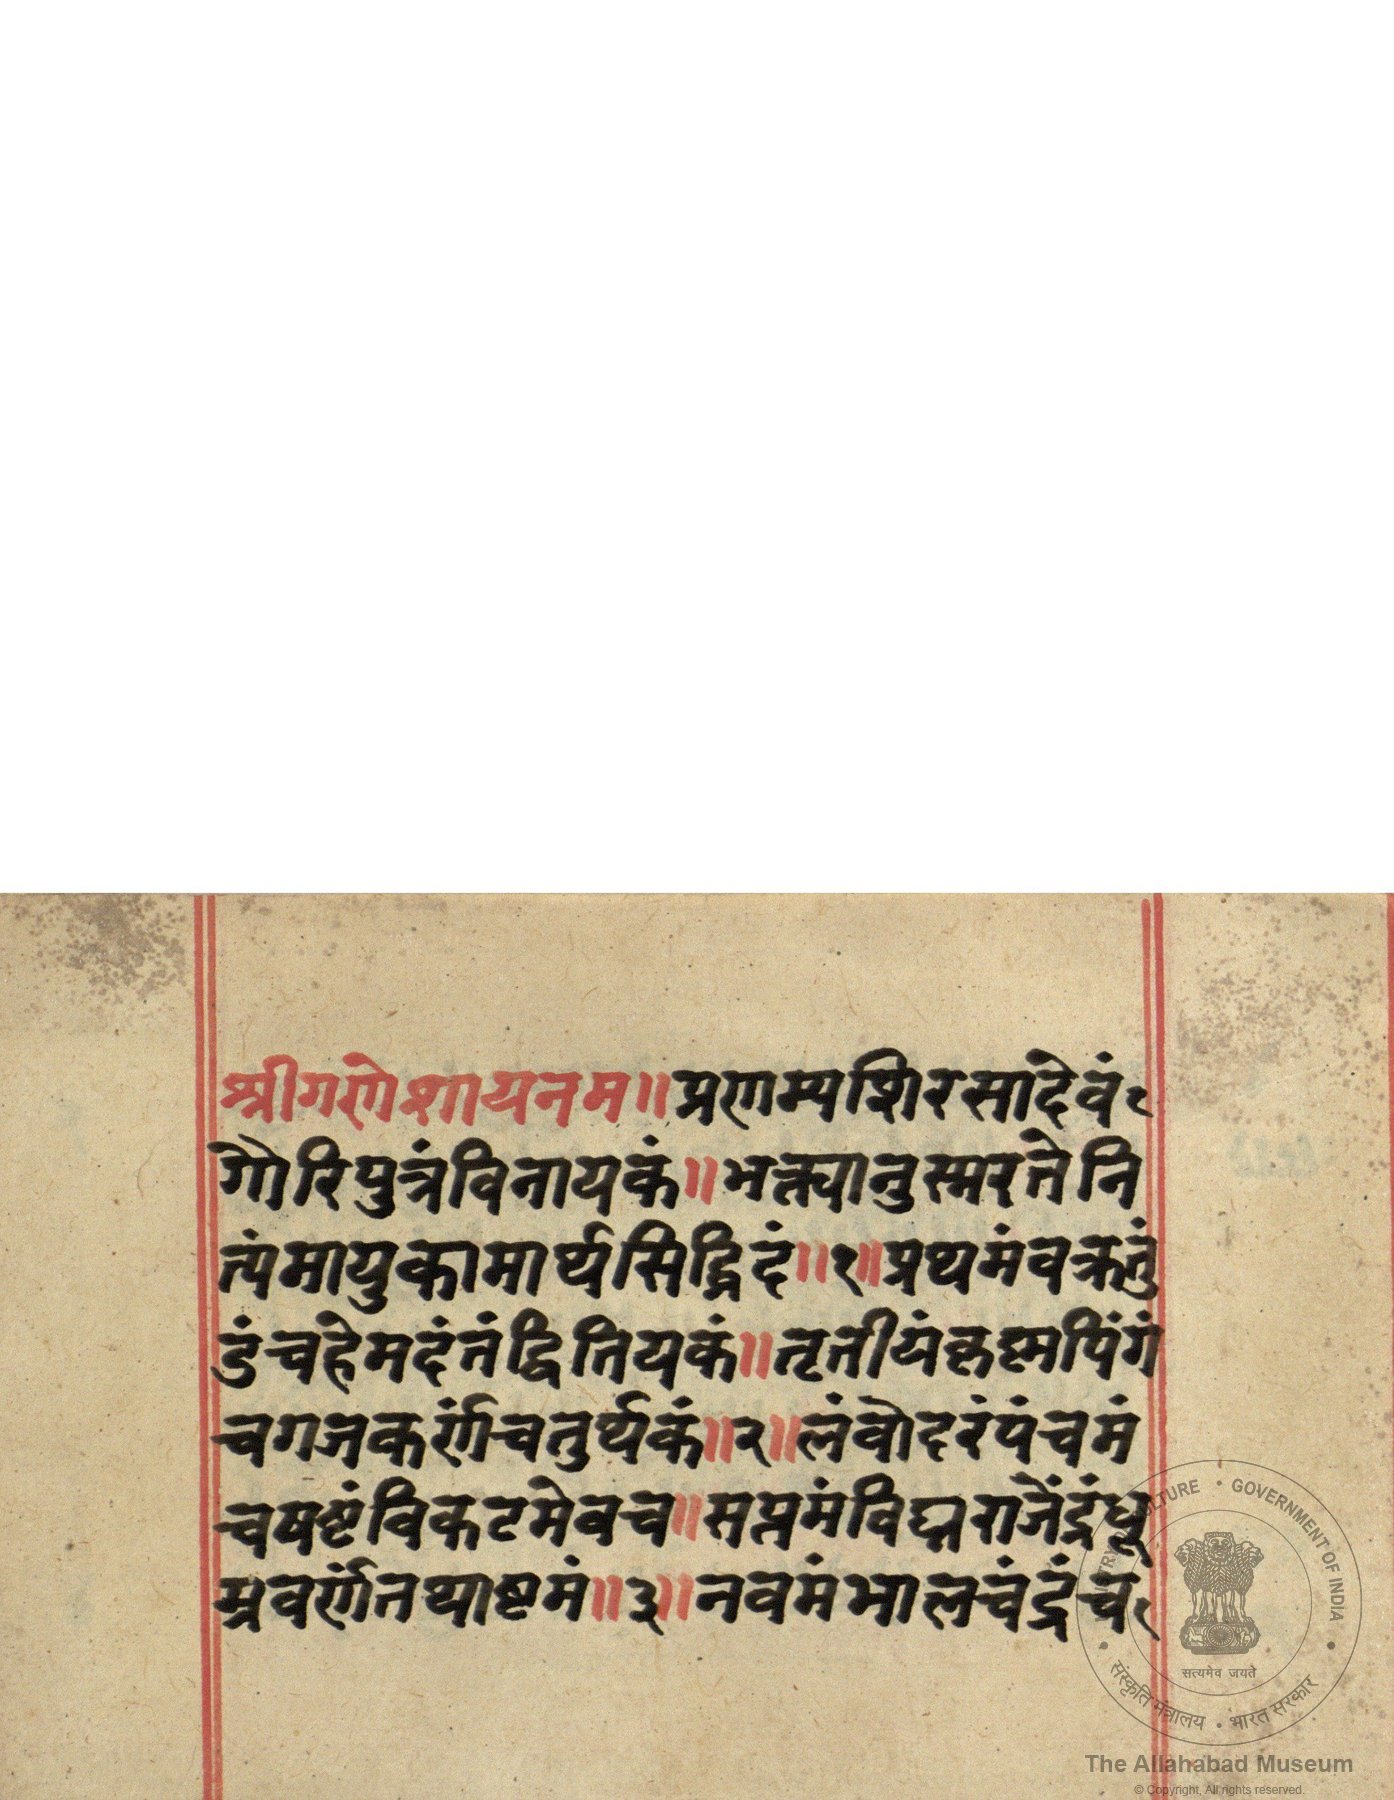 श्रीगणेशायनम॥प्रणम्यशिरसादेवं
गौरिपुत्रंविनायकं॥भक्त्यानुस्मरन्तेनि
त्यंमायुकामार्थसिद्धिदं॥१॥प्रथमंवक्रतुं
डंचहेमदंतंद्वितियकं॥तृतीयंकृष्मपिंगं
चगजकर्णचतुर्थकं॥२॥लंवोदरंपंचमं
चषष्टंविकटमेवच॥सप्तमंविघ्नराजेंद्रंधू
म्रवर्णंतथाष्टमं॥३॥नवमंभालचंद्रंच
MINISTRY OF CULTURE • GOVERNMENT OF INDIA
सत्यमेव जयते
संस्कृति मंत्रालय • भारत सरकार
The Allahabad Museum
© Copyright, All rights reserved.